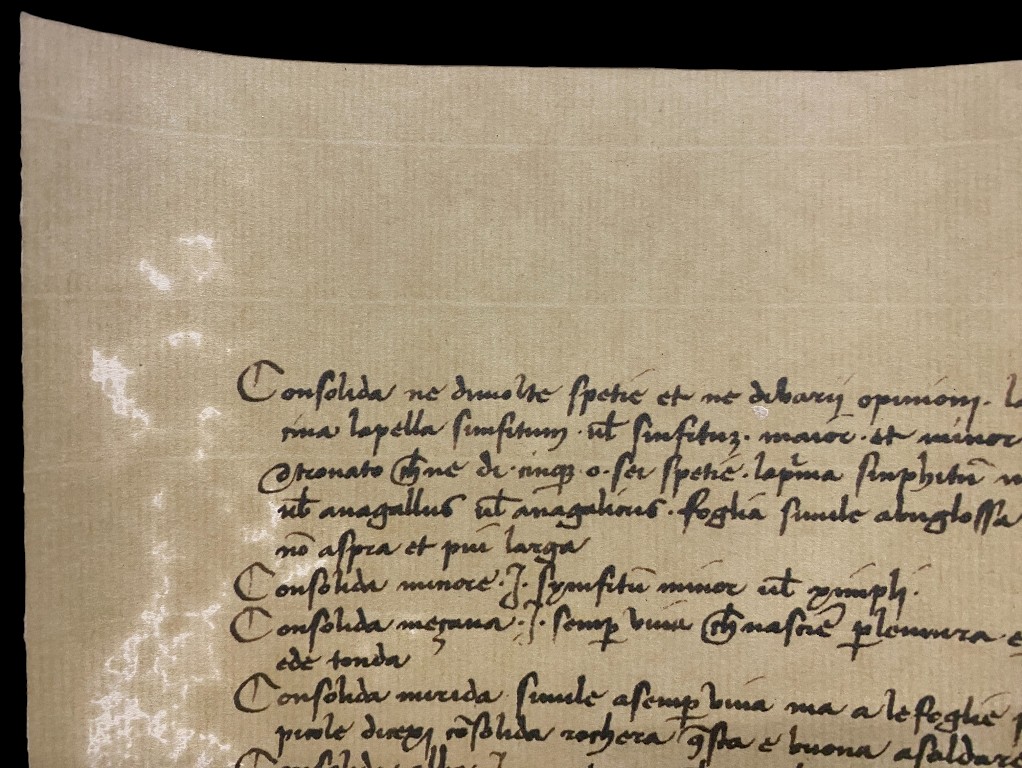 Consolida ne dimolte spetie et ne di varij opinionj. la
cina lapella sinfitum. ul sinfituz. maior. et minor
Otronato che ne di. cinque. o. sei spetie. la prima sinphitū
ul anagallus ul anagalicus. foglia simile abuglossa
nō aspra et piu larga
Consolida minore. J. symfitū minor ul ximphi.
Consolida meçana. J. semp viva che nascie p lemura e
ede tonda
Consolida mirida simile asemp viva ma a le foglie
picole dicexj cōsolida rochera qsta e buona asaldare
Consolida alba